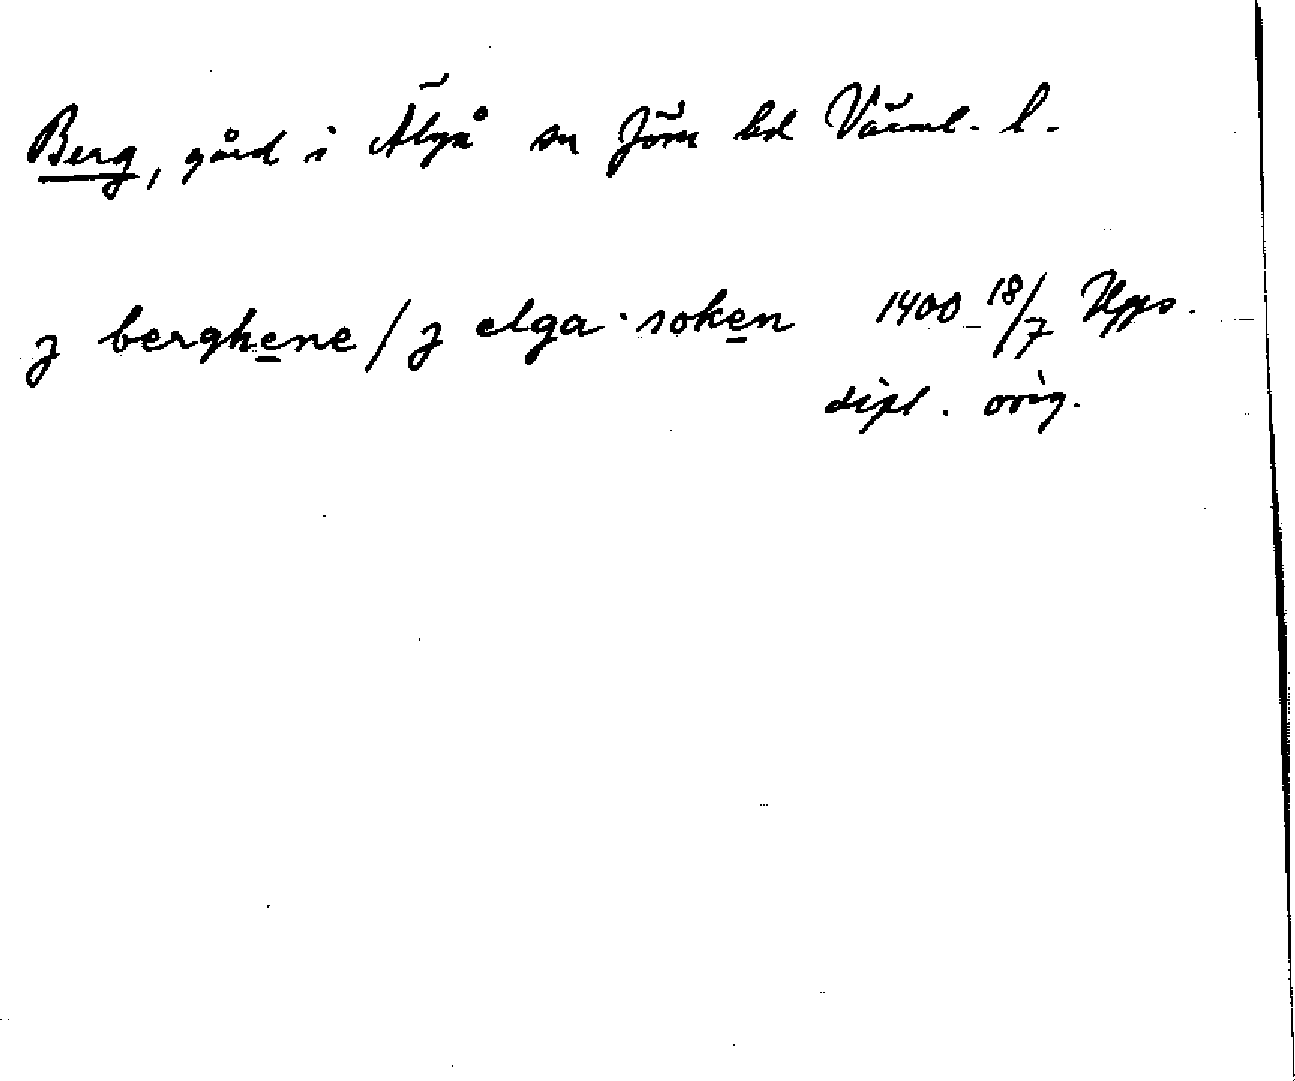 Berg, gård i Älgå sn Jöss hd Värml. l.
j berghene / j elga soken 1400 18/7 Upps.
dipl. orig.